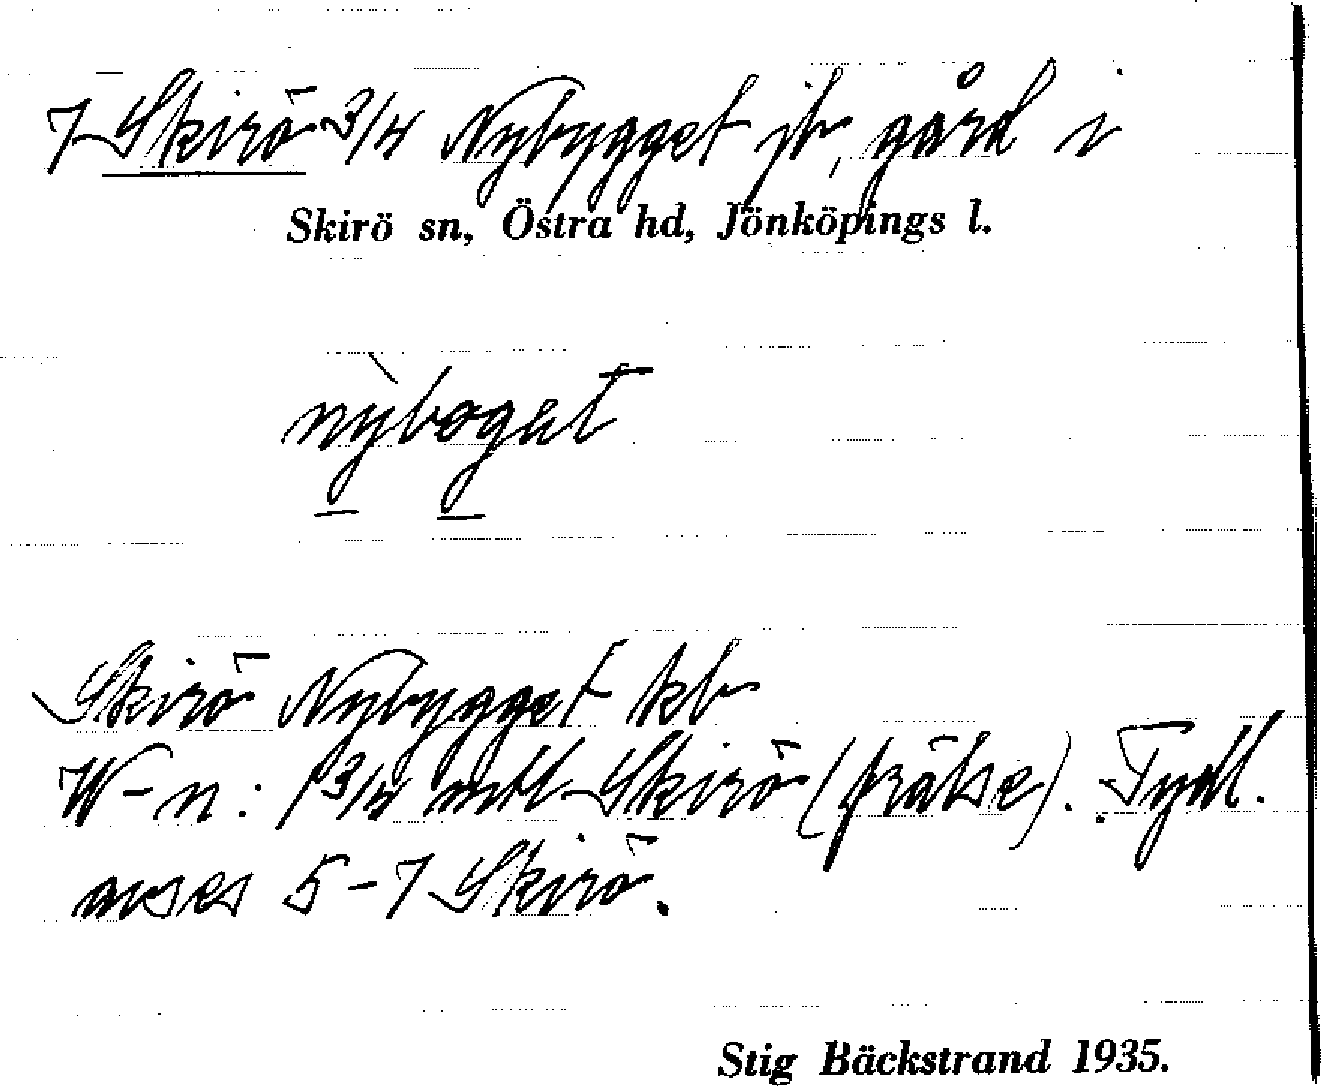 7 Skirö 3/4 Nybygget jb, gård i
Skirö sn, Östra hd, Jönköpings l.
Skirö Nybygget kb
W-n: 1 3/4 mtl Skirö (frälse). Tydl.
avses 5-7 Skirö.
Stig Bäckstrand 1935.